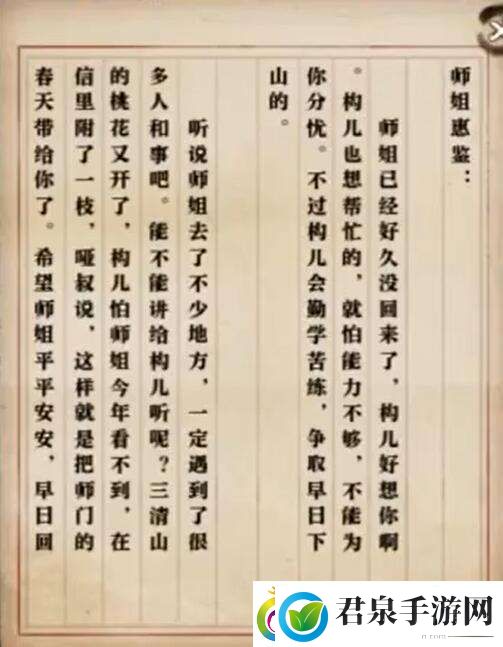 师姐惠鉴：
师姐已经好久没回来了，构儿好想你啊
。构儿也想帮忙的，就怕能力不够，不能为
你分忧。不过构儿会勤学苦练，争取早日下
山的。
听说师姐去了不少地方，一定遇到了很
多人和事吧。能不能讲给构儿听呢？三清山
的桃花又开了，构儿怕师姐今年看不到，在
信里附了一枝，哑叔说，这样就是把师门的
春天带给你了。希望师姐平平安安，早日回
君泉手游网